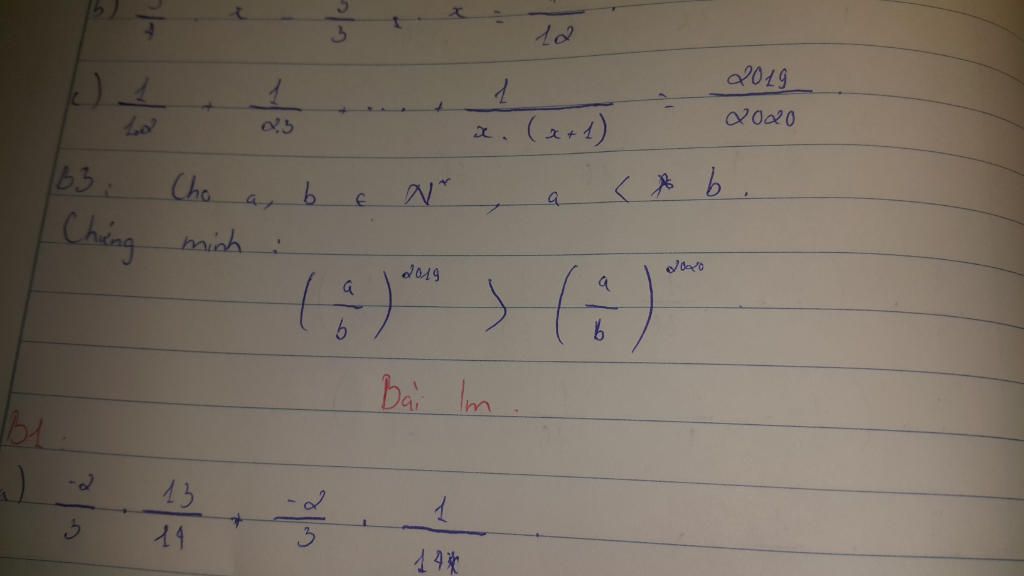 b) · x - · x =  / 12 .
c) 1/1.2 + 1/23 + .... + 1/x. (x+1) = 2019/2020 .
B3: Cho a, b ϵ N* , a < b .
Chứng minh :
(a/b)^2019 > (a/b)^2020
Bài lm .
B1 .
a) -2/3 . 13/14 + -2/3 . 1/14 .